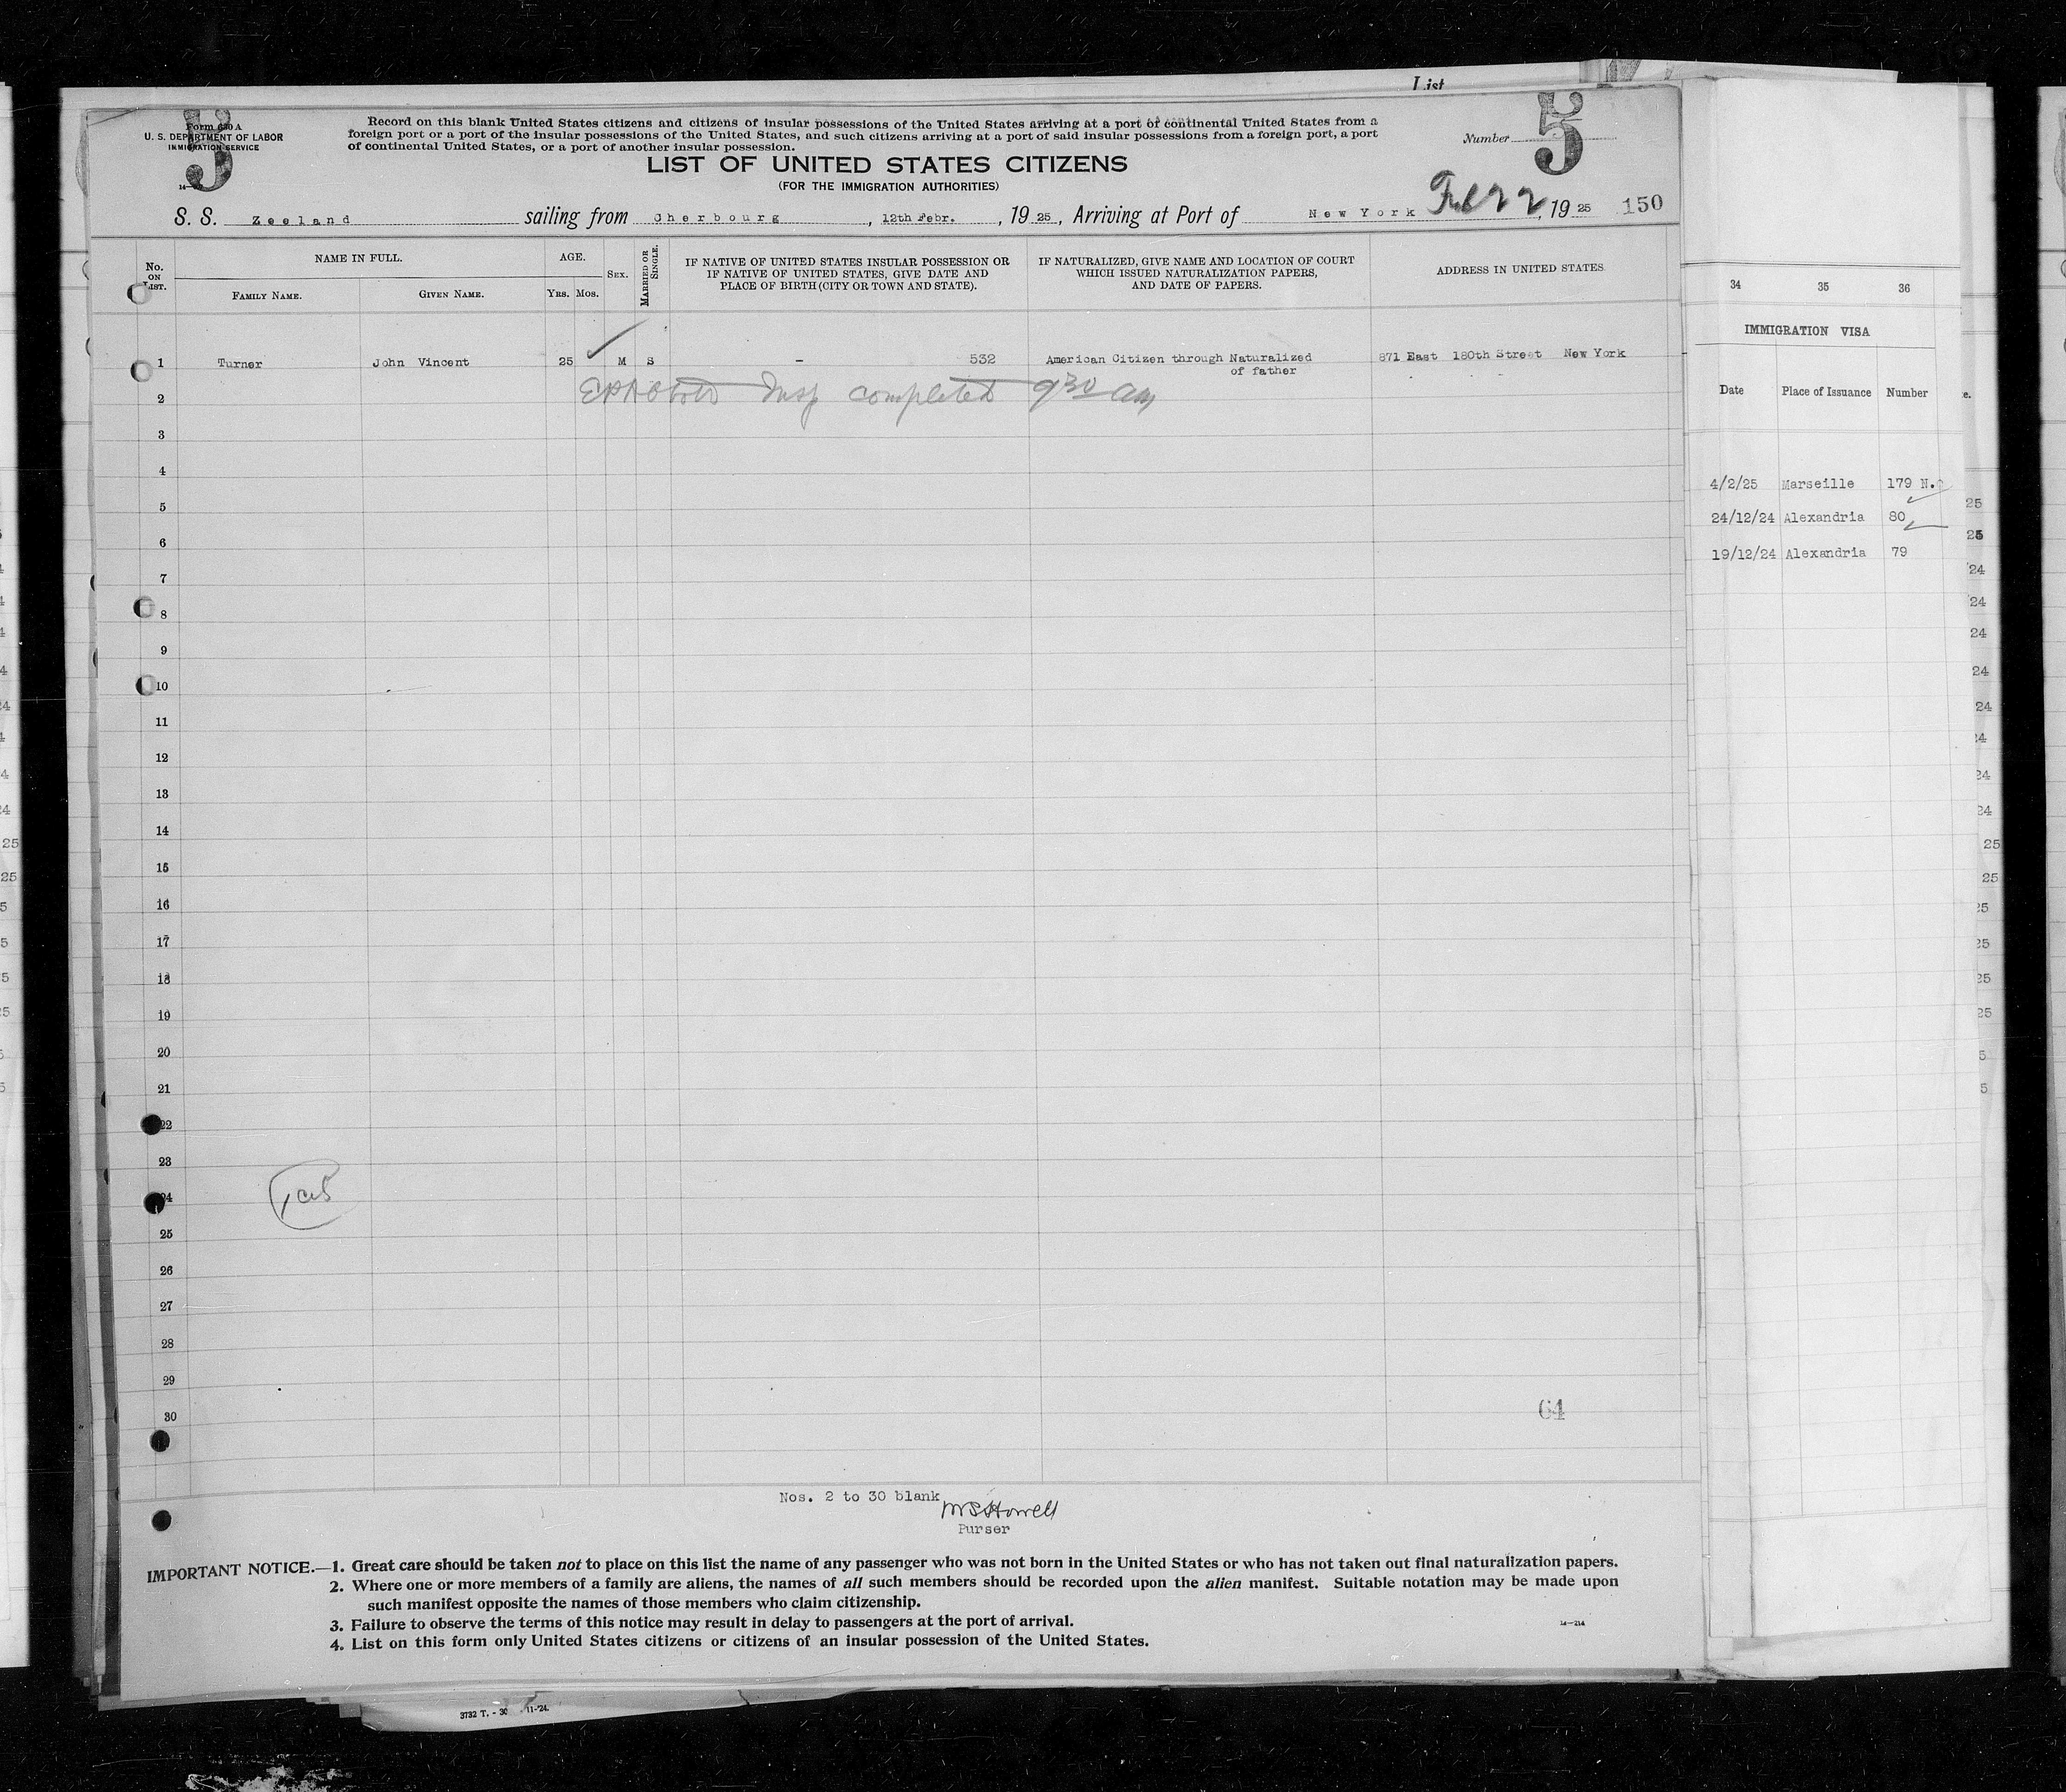 List
5
Form 630 A
U. S. DEPARTMENT OF LABOR
IMMIGRATION SERVICE
Record on this blank United States citizens and citizens of insular possessions of the United States arriving at a port of continental United States from a
foreign port or a port of the insular possessions of the United States, and such citizens arriving at a port of said insular possessions from a foreign port, a port
of continental United States, or a port of another insular possession.
Number 5
LIST OF UNITED STATES CITIZENS
(FOR THE IMMIGRATION AUTHORITIES)
S. S. Zeeland sailing from Cherbourg, 12th Febr., 19 25, Arriving at Port of New York Feb 22, 19 25 150
No. ON LIST.
NAME IN FULL.
FAMILY NAME. GIVEN NAME.
AGE.
YRS. MOS.
SEX.
MARRIED OR SINGLE.
IF NATIVE OF UNITED STATES INSULAR POSSESSION OR
IF NATIVE OF UNITED STATES, GIVE DATE AND
PLACE OF BIRTH (CITY OR TOWN AND STATE).
IF NATURALIZED, GIVE NAME AND LOCATION OF COURT
WHICH ISSUED NATURALIZATION PAPERS,
AND DATE OF PAPERS.
ADDRESS IN UNITED STATES
1 Turner John Vincent 25 M S - 532 American Citizen through Naturalized 871 East 180th Street New York
of father
2 Insp completed 9 30 am
3
4
5
6
7
8
9
10
11
12
13
14
15
16
17
18
19
20
21
22
23
24
25
26
27
28
29
30
64
Nos. 2 to 30 blank
Purser
IMPORTANT NOTICE.—1. Great care should be taken not to place on this list the name of any passenger who was not born in the United States or who has not taken out final naturalization papers.
2. Where one or more members of a family are aliens, the names of all such members should be recorded upon the alien manifest. Suitable notation may be made upon
such manifest opposite the names of those members who claim citizenship.
3. Failure to observe the terms of this notice may result in delay to passengers at the port of arrival.
4. List on this form only United States citizens or citizens of an insular possession of the United States.
14—214
3732 T. - 30 11-'24.
34 35 36
IMMIGRATION VISA
Date Place of Issuance Number
4/2/25 Marseille 179 N.
24/12/24 Alexandria 80
19/12/24 Alexandria 79
25
25
24
24
24
24
24
24
24
24
25
25
25
25
25
25
5
5